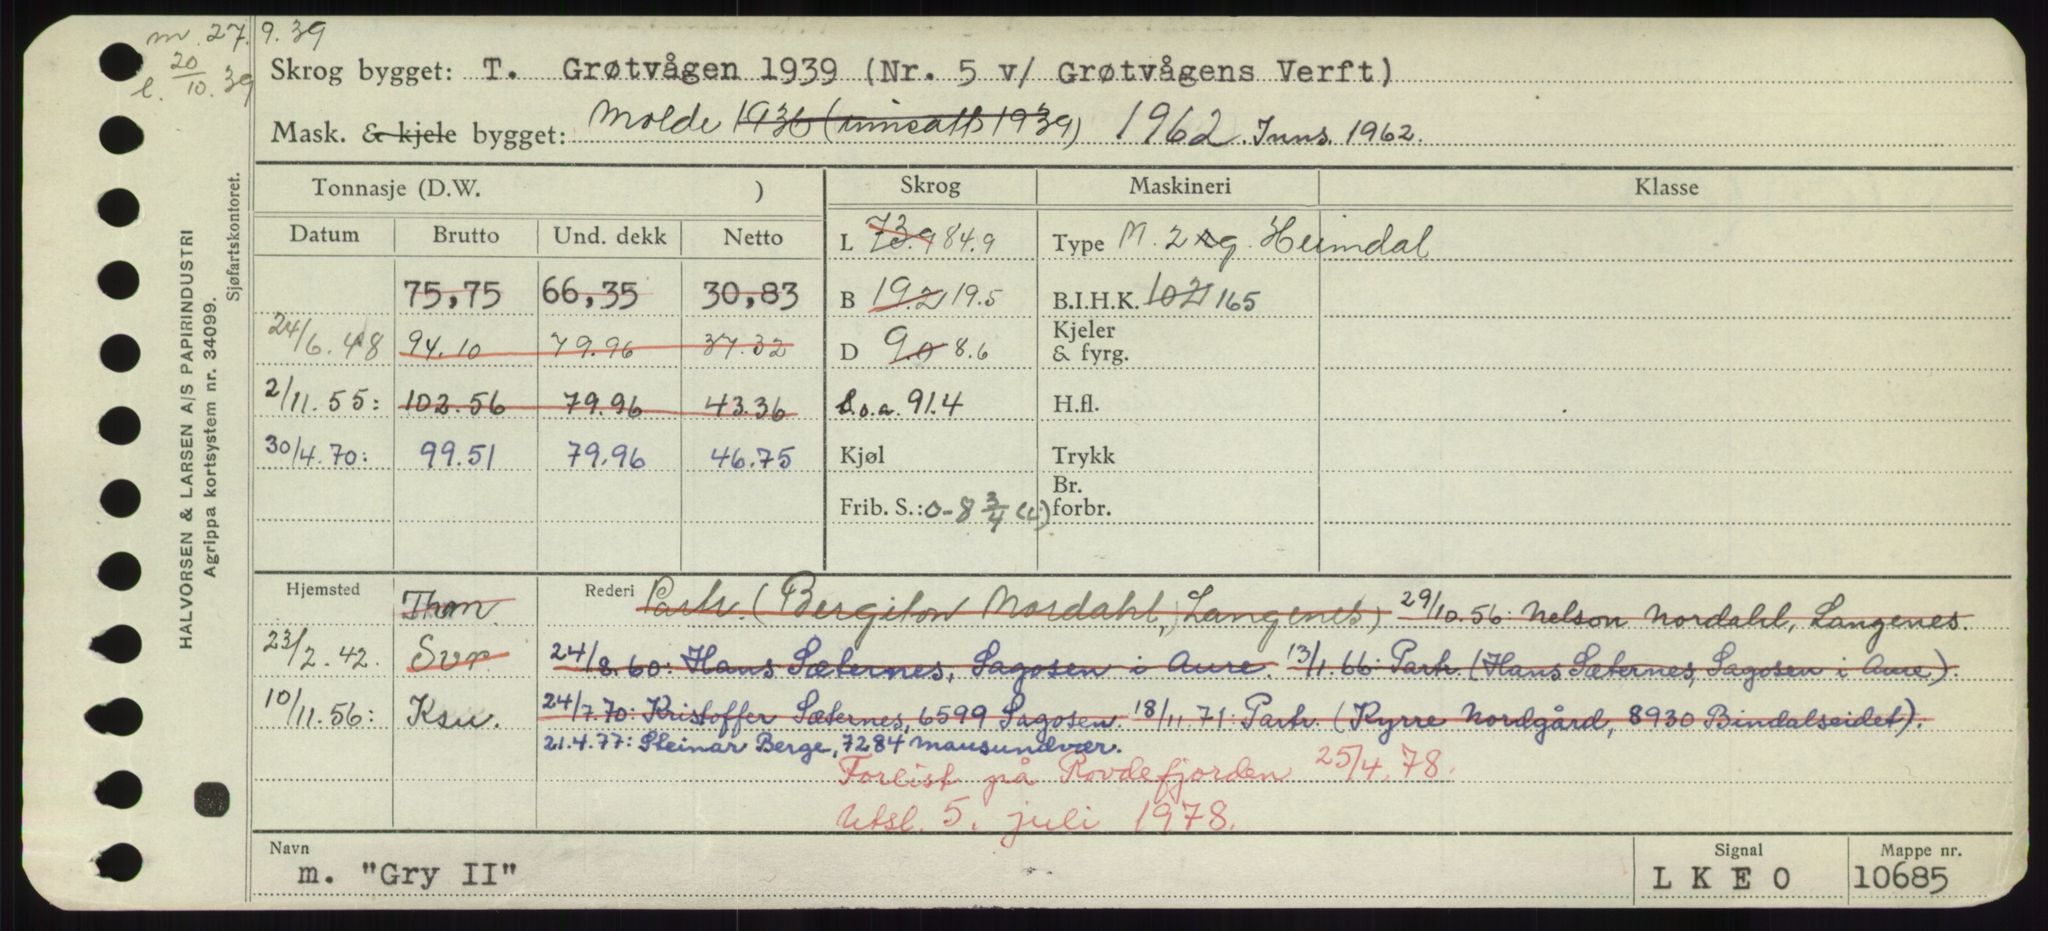 m. 27.9.39
l. 20/10.39
Skrog bygget: T. Grøtvågen 1939 (Nr. 5 v/ Grøtvågens Verft)
Mask. & kjele bygget: Molde 1936 (innsatt 1939) 1962. Inns. 1962.
Tonnasje (D.W. ) Skrog Maskineri Klasse
Datum Brutto Und. dekk Netto L 73.9 84.9 Type M. 2 sg. Heimdal
75,75 66,35 30,83 B 19.2 19.5 B.I.H.K. 102 165
24/6.48 94.10 79.96 37.32 D 9.0 8.6 Kjeler & fyrg.
2/11.55: 102.56 79.96 43.36 L.o.a. 91.4 H.fl.
30/4.70: 99.51 79.96 46.75 Kjøl Trykk
Frib. S.: 0-8 3/4 Br. forbr.
Hjemsted Thm. Rederi Partr. (Bergiton Nordahl, Langenes) 29/10.56: Nelson Nordahl, Langenes.
23/2.42. Svr. 24/8.60: Hans Sæternes, Sagosen i Aure. 13/1.66: Partr. (Hans Sæternes, Sagosen i Aure).
10/11.56: Ksu. 24/7.70: Kristoffer Sæternes, 6599 Sagosen. 18/11.71: Partr. (Kyrre Nordgård, 8930 Bindalseidet).
21.4.77: Steinar Berge, 7284 Mausundvær.
Forlist på Rovdefjorden 25/4.78.
Utsl. 5. juli 1978.
Navn Signal Mappe nr.
m. "Gry II" L K E O 10685
HALVORSEN & LARSEN A/S PAPIRINDUSTRI
Agrippa kortsystem nr. 34099.
Sjøfartskontoret.